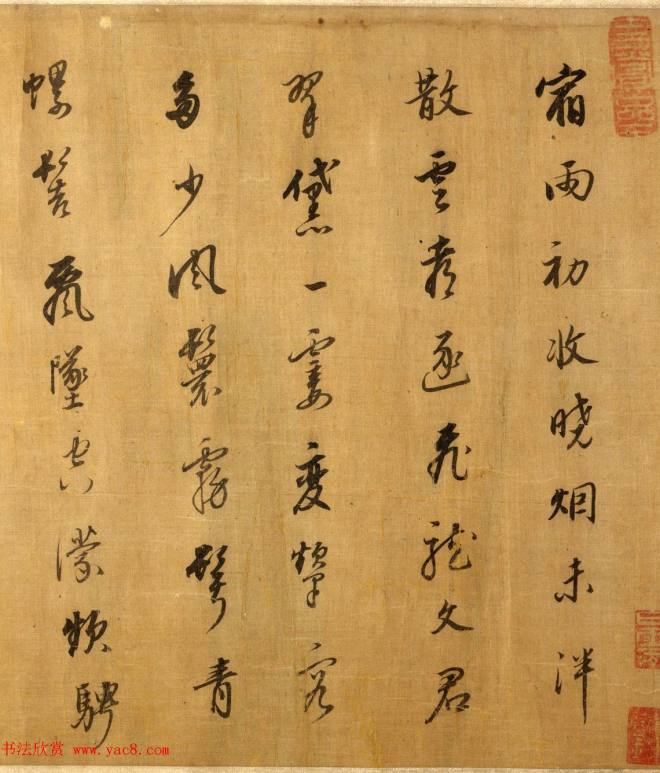 宿雨初收晓烟未泮
散雲都逐飛龍文君
翠黛一霎變顰容
多少風鬟霧鬢青
螺髻亂墜空濛頻騁
书法欣赏 www.yac8.com